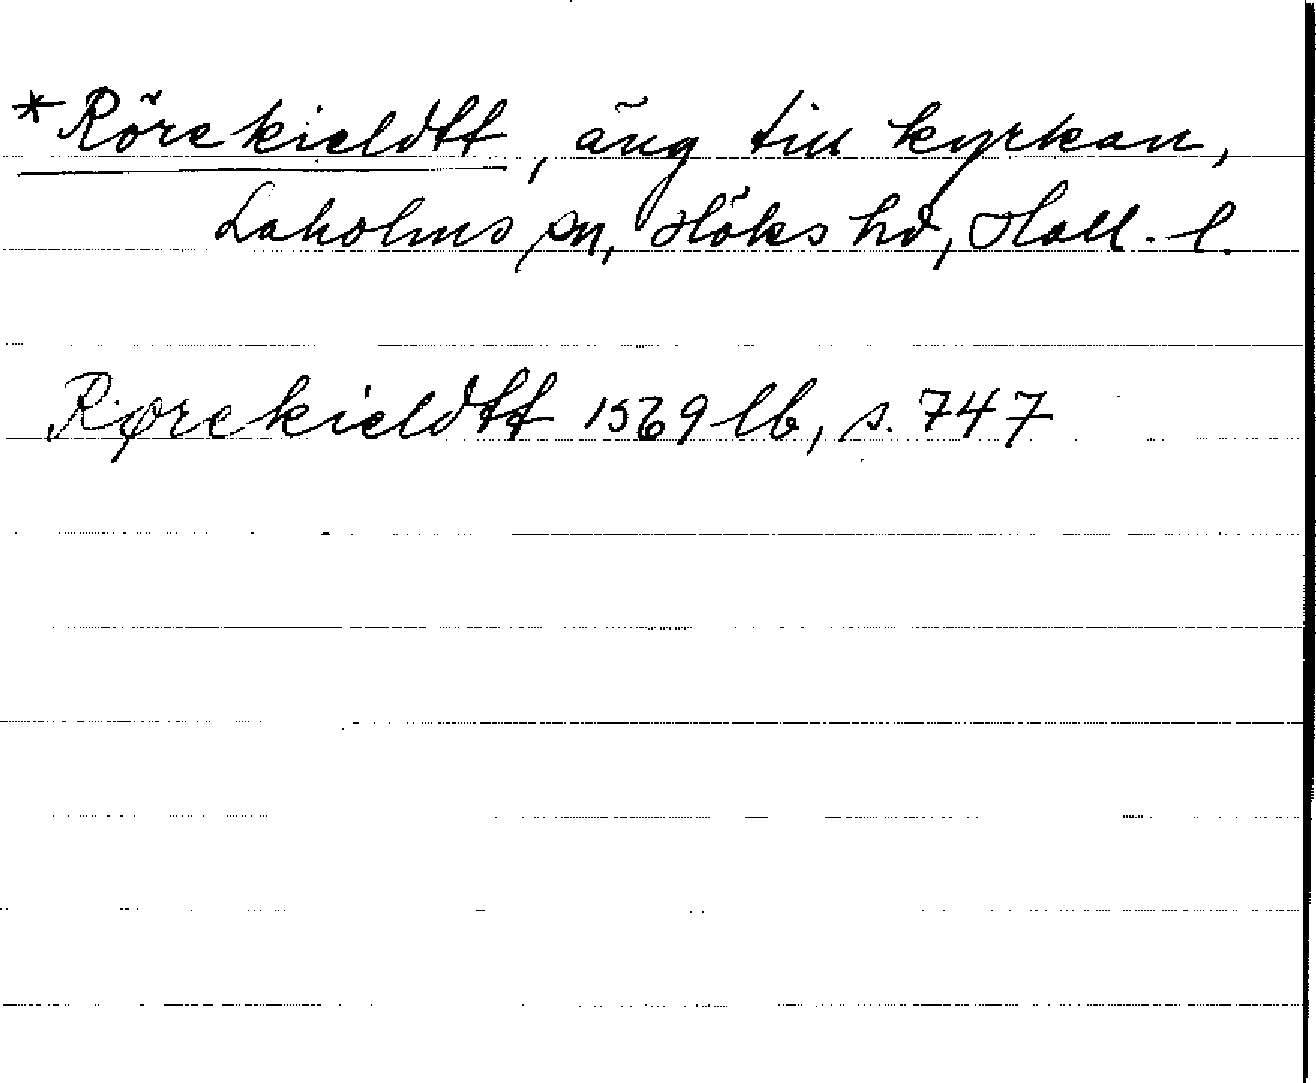 *Rörekieldtt, äng till kyrkan,
Laholms sn, Höks hd, Hall. l.
Rørekieldtt 1569 lb, s. 747